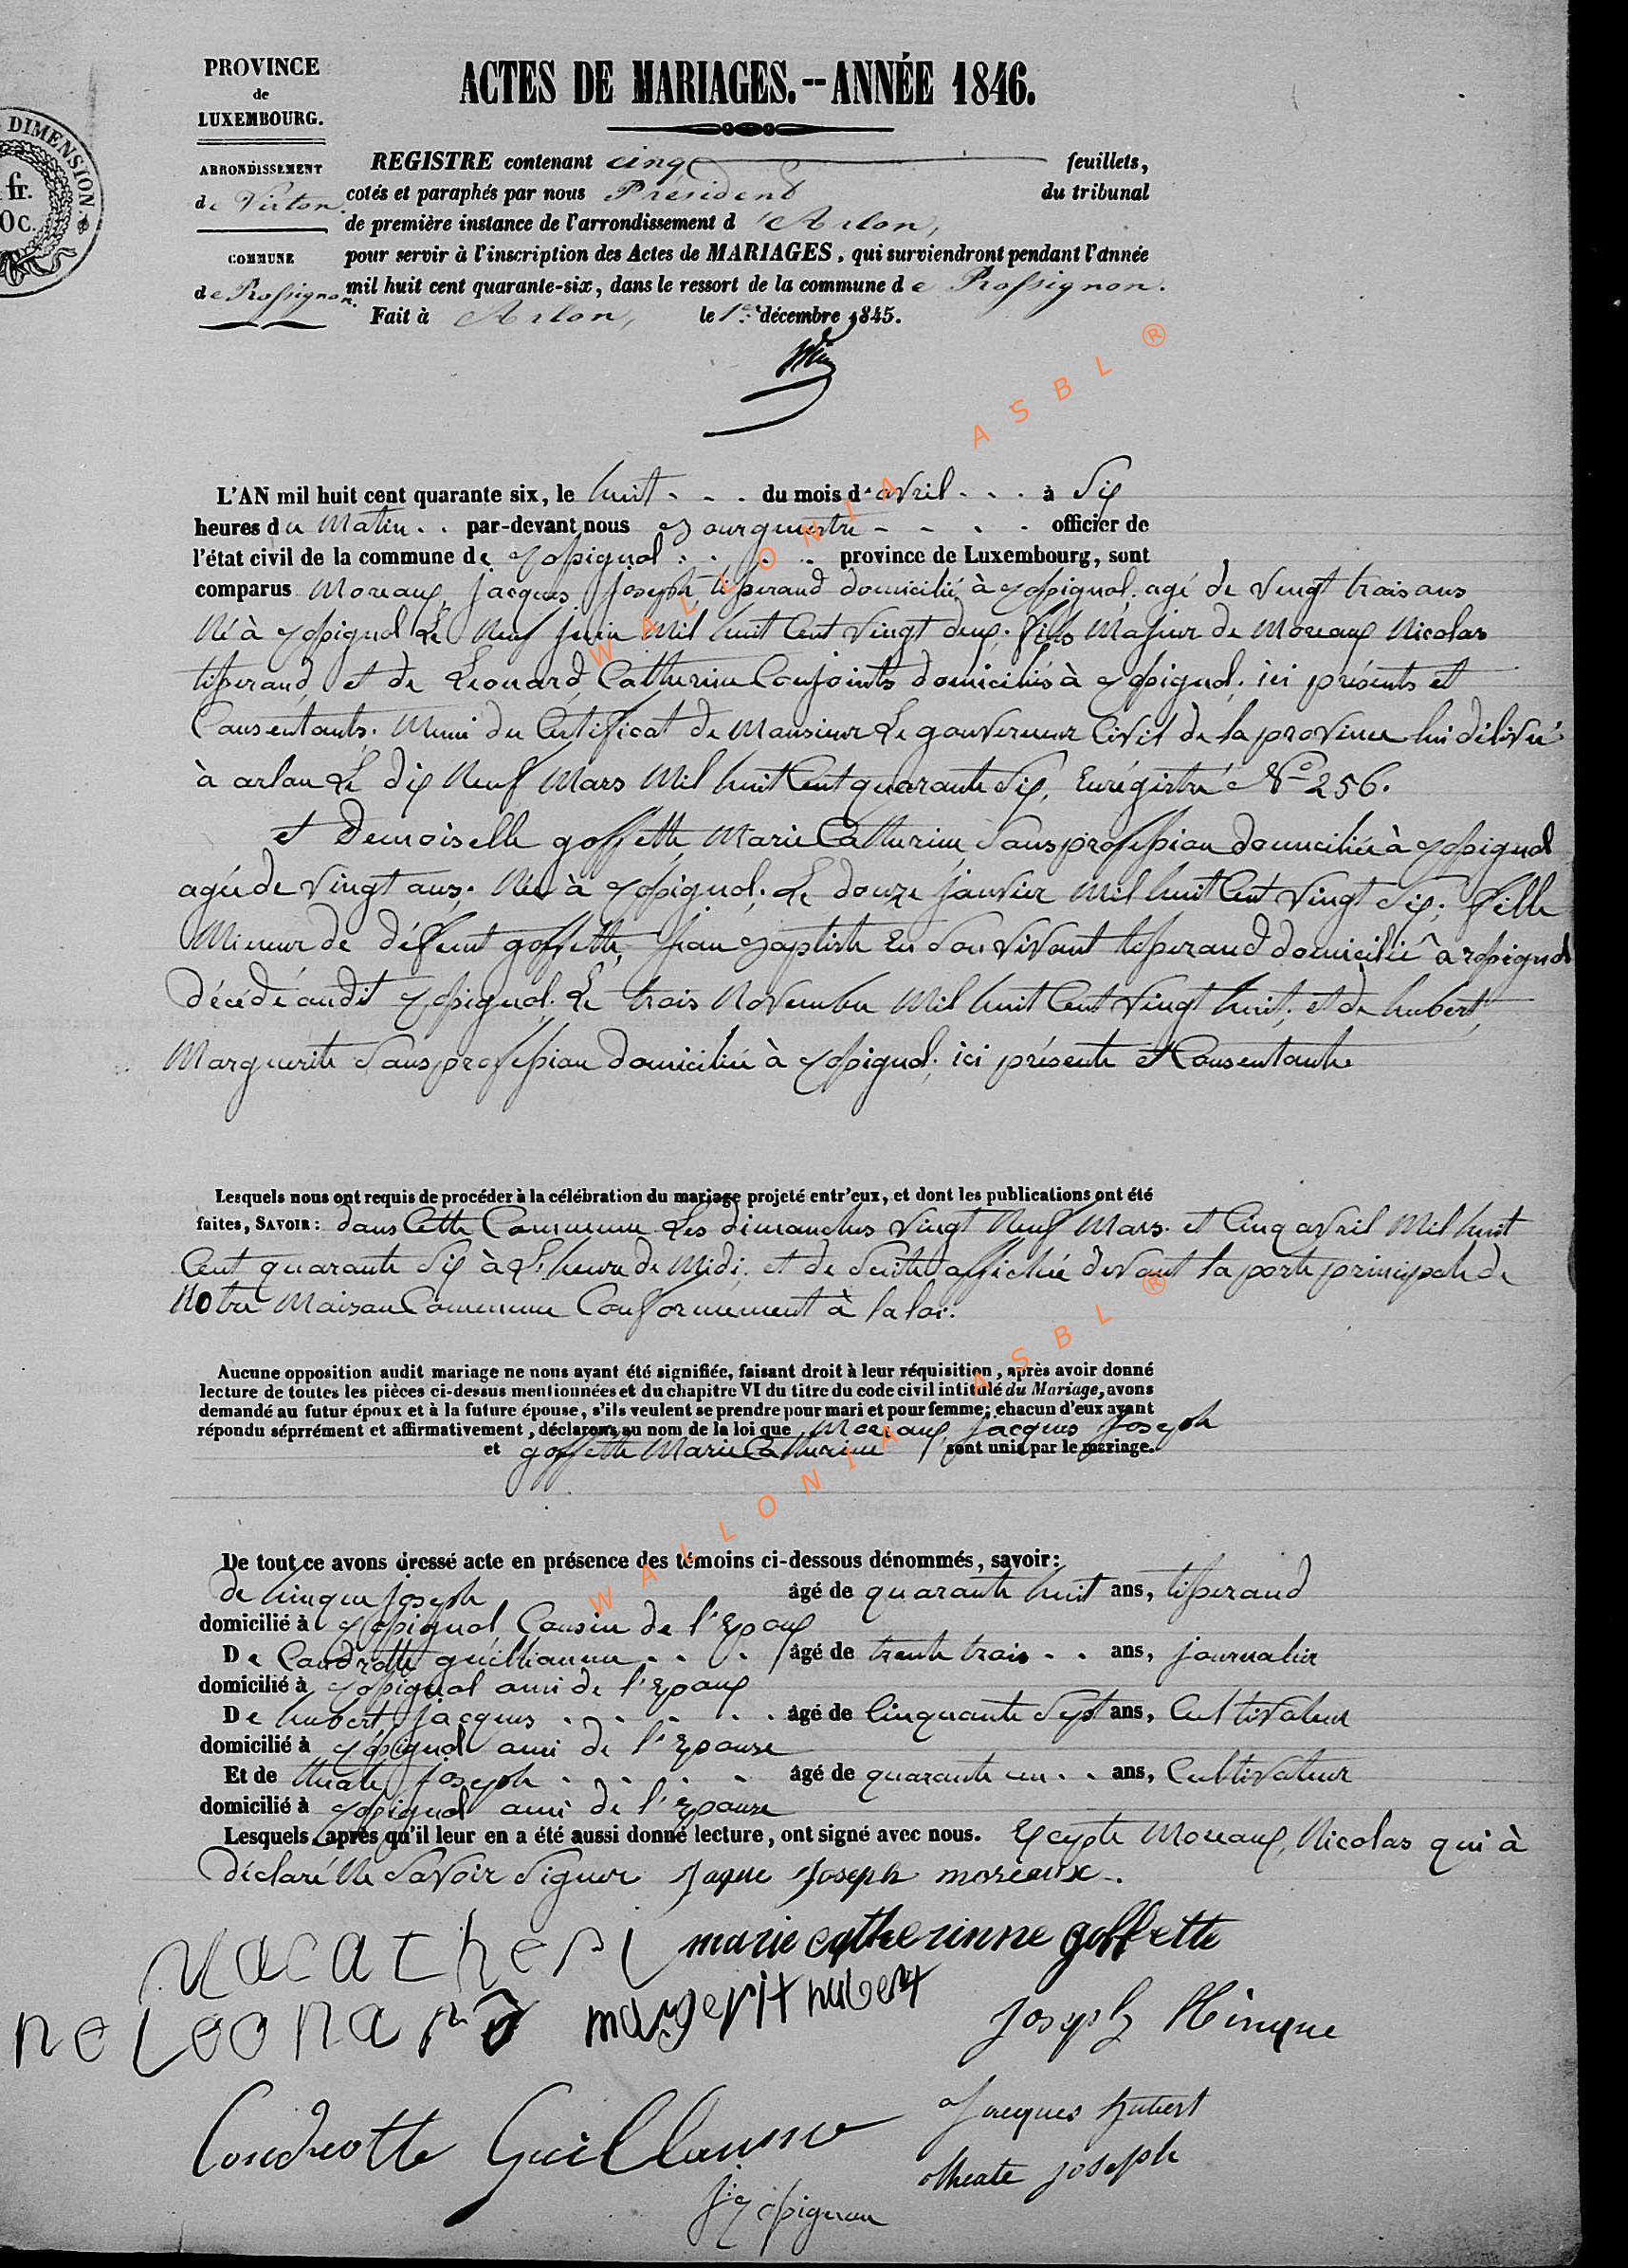 PROVINCE
de
LUXEMBOURG.
ARRONDISSEMENT
de Virton.
COMMUNE
de Rossignon.
DIMENSION.
fr.
0c.
ACTES DE MARIAGES.--ANNÉE 1846.
REGISTRE contenant cinq feuillets,
cotés et paraphés par nous Président du tribunal
de première instance de l'arrondissement d'Arlon,
pour servir à l'inscription des Actes de MARIAGES, qui surviendront pendant l'année
mil huit cent quarante-six, dans le ressort de la commune de Rossignon.
Fait à Arlon, le 1er décembre 1845.
L'AN mil huit cent quarante six, le huit - - - du mois d'avril - - - à Six
heures du Matin - - par-devant nous Bourguestre - - - - officier de
l'état civil de la commune de rossignol - - - - province de Luxembourg, sont
comparus Moreaux, jacques joseph, tisserand domicilié à rossignol, agé de Vingt trois ans
Né à rossignol Le Neuf juin Mil huit Cent Vingt deux. fils Majeur de Moreaux Nicolas
tisserand, et de Léonard, Catherine Conjoints domiciliés à rossignol, ici présents et
Consentants. Muni du Certificat de Monsieur Le gouverneur Civil de la province lui délivré
à arlon Le dix Neuf Mars Mil huit Cent quarante Six, Enrégistré No 256.
et Demoiselle goffette Marie Catherine, Sans profession domiciliée à rossignol
agée de Vingt ans. Née à rossignol, Le douze janvier Mil huit Cent Vingt Six, fille
Mineur de défunt goffette, jean Baptiste En Son Vivant tisserand domicilié à rossignol
décédé audit rossignol. Le trois Novembre Mil huit Cent Vingt huit, et de hubert,
Marguerite Sans profession domiciliée à rossignol, ici présente et Consentante
Lesquels nous ont requis de procéder à la célébration du mariage projeté entr'eux, et dont les publications ont été
faites, SAVOIR: dans Cette Commune Les dimanches Vingt Neuf Mars et Cinq avril Mil huit
Cent quarante Six à L'heure de Midi, et de Suite affichée devant la porte principale de
Notre Maison Commune Conformément à la loi.
Aucune opposition audit mariage ne nous ayant été signifiée, faisant droit à leur réquisition, après avoir donné
lecture de toutes les pièces ci-dessus mentionnées et du chapitre VI du titre du code civil intitulé du Mariage, avons
demandé au futur époux et à la future épouse, s'ils veulent se prendre pour mari et pour femme; chacun d'eux ayant
répondu séprrément et affirmativement, déclarons au nom de la loi que Moreaux, jacques joseph
et goffette Marie Catherine sont unis par le mariage.
De tout ce avons dressé acte en présence des témoins ci-dessous dénommés, savoir:
de hinque joseph âgé de quarante huit ans, tisserand
domicilié à rossignol Cousin de l'Epoux
De Condrotte guillaume - - - âgé de trente trois - - ans, journalier
domicilié à rossignol ami de l'Epoux
De hubert, jacques - - - - - âgé de Cinquante Sept ans, Cultivateur
domicilié à rossignol ami de l'Epouse
Et de theate joseph - - - - - âgé de quarante un - - ans, Cultivateur
domicilié à rossignol ami de l'Epouse
Lesquels, après qu'il leur en a été aussi donné lecture, ont signé avec nous. Excepté Moreaux, Nicolas qui à
déclaré Ne Savoir Signer Jaque Joseph moreaux.
marie catherinne goffette
ne Leonard margerit hubert Joseph Hinque
Condrotte Guillaume Jacques hubert
theate joseph
WALLONIA ASBL ®
WALLONIA ASBL ®